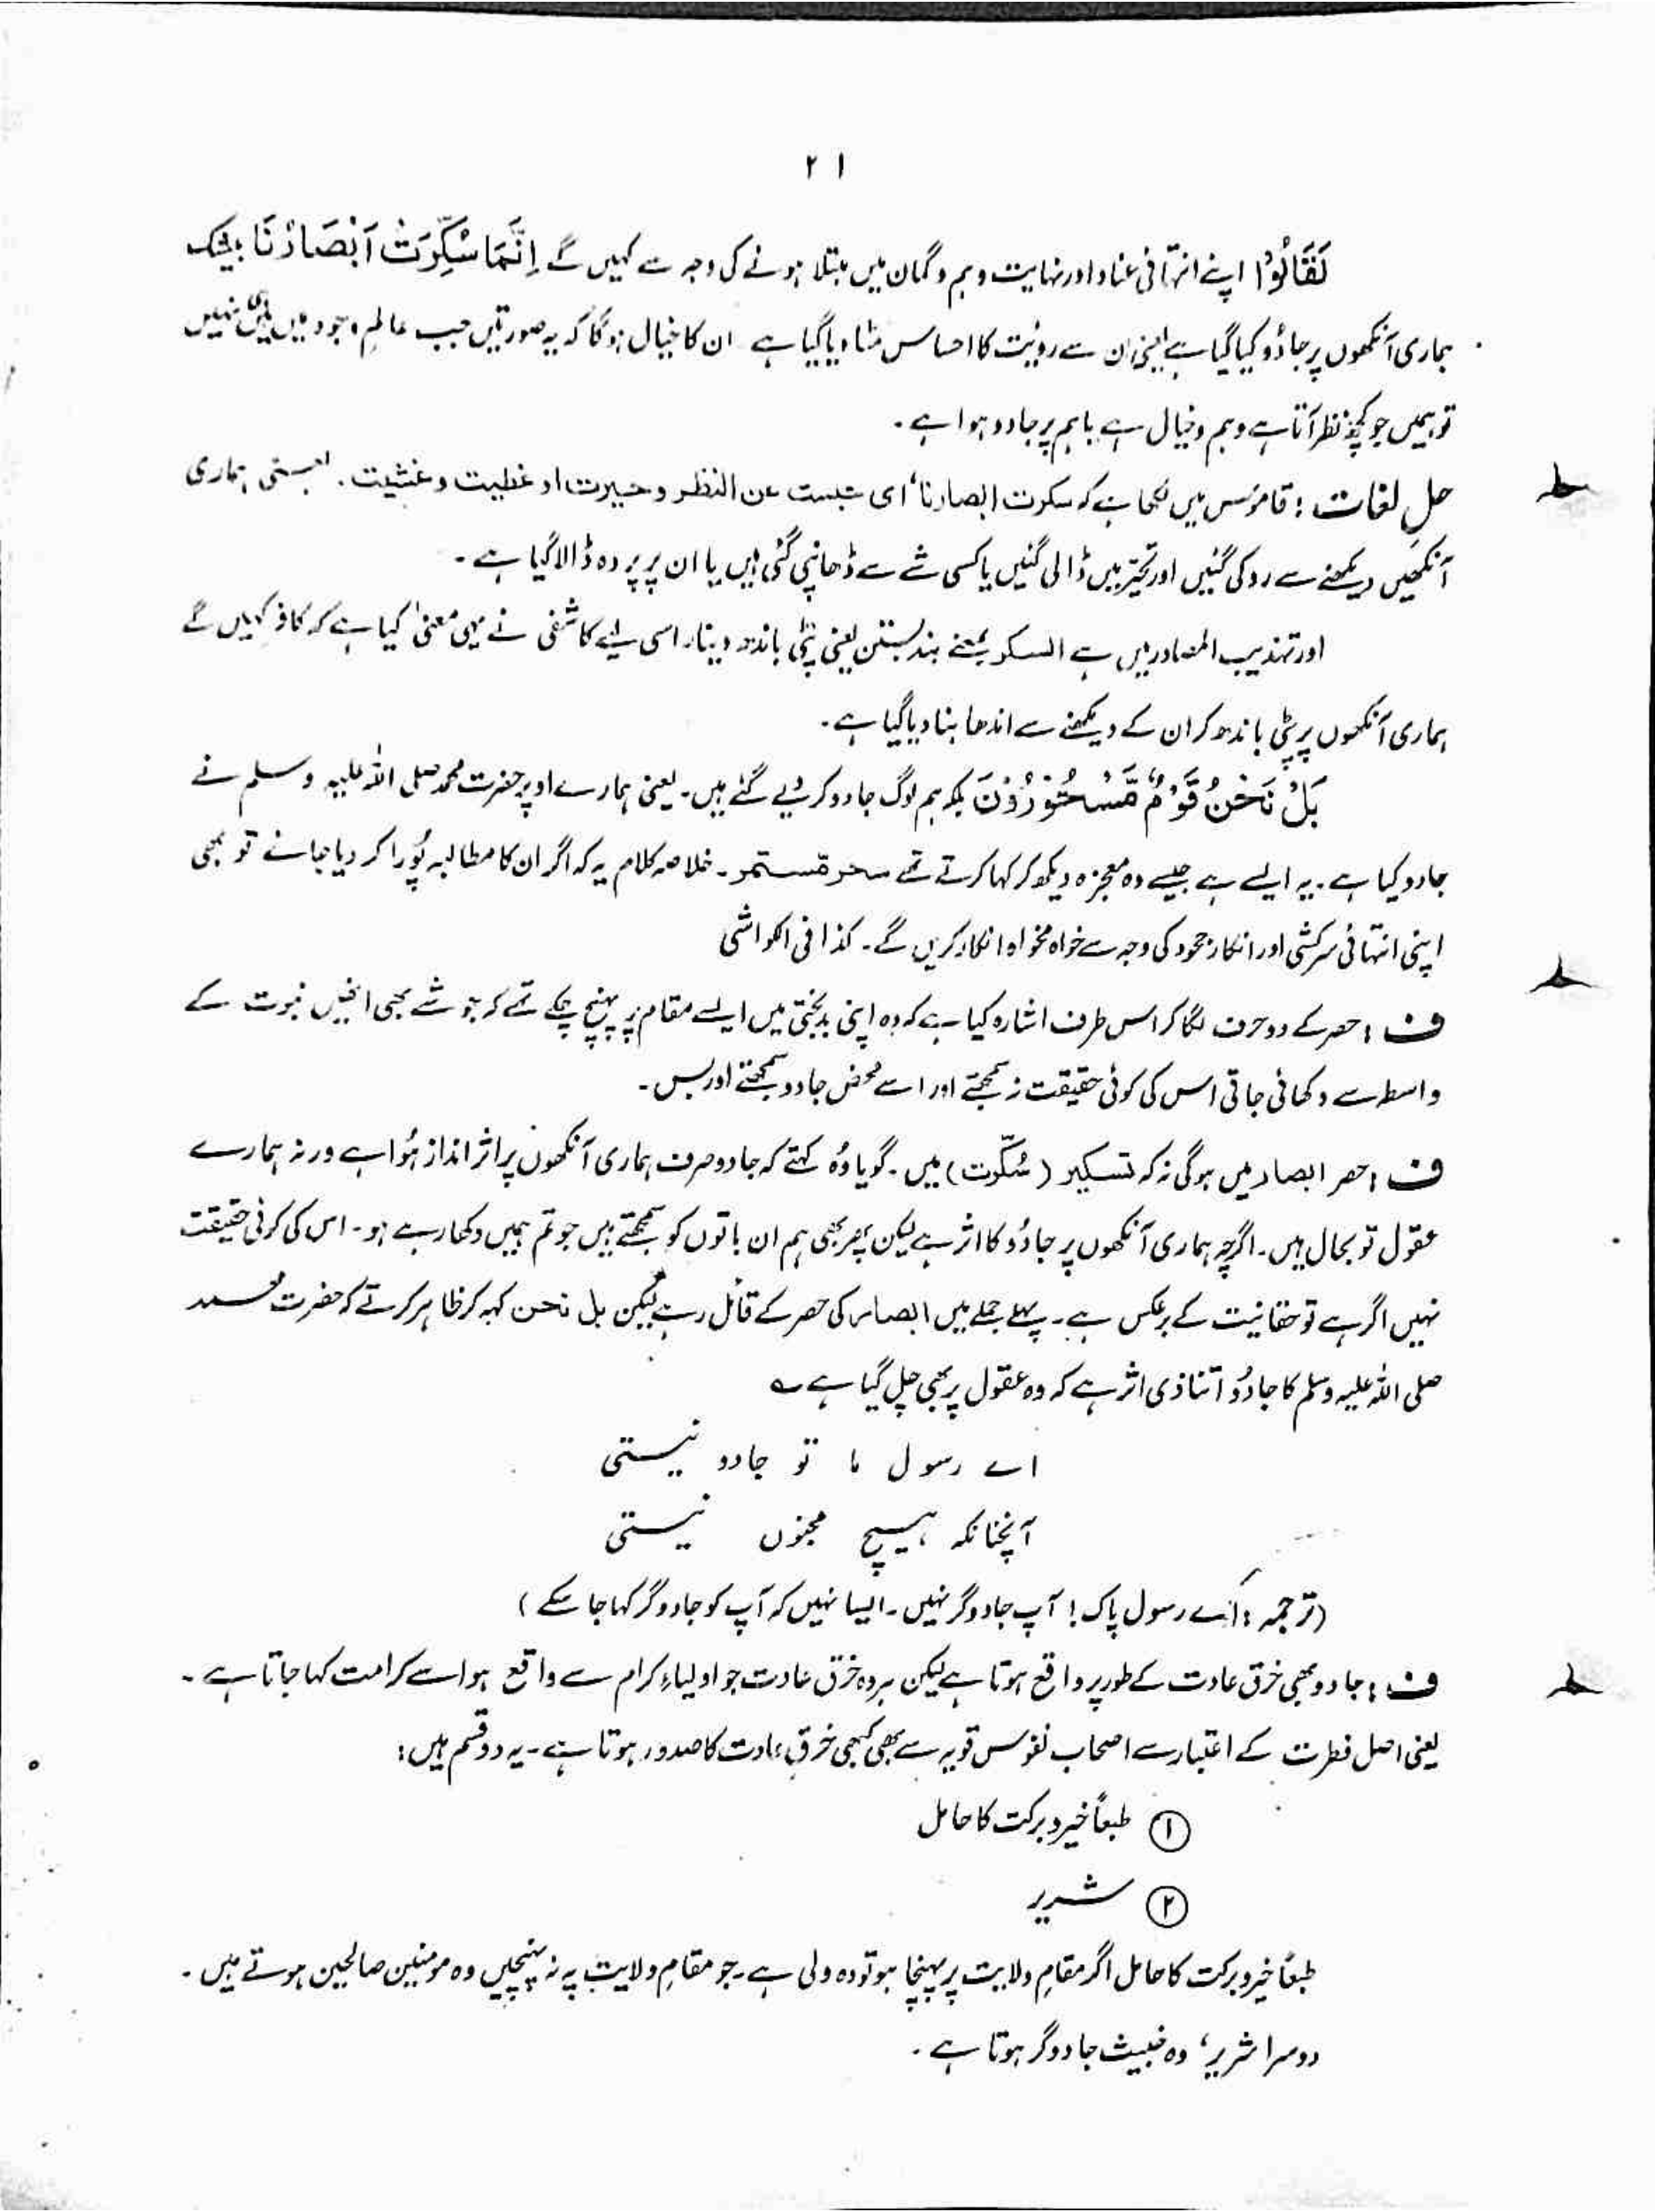 ۲۱
لَقَالُوْٓا اپنے انتہائی عناد اور نہایت وہم و گمان میں مبتلا ہونے کی وجہ سے کہیں گے اِنَّمَا سُكِّرَتْ اَبْصَارُنَا بیشک
ہماری آنکھوں پر جادُو کیا گیا ہے یعنی ان سے رویٔت کا احساس مٹا دیا گیا ہے ان کا خیال ہوگا کہ یہ صورتیں جب عالمِ وجود میں ہیں ہی نہیں
تو ہمیں جو کچھ نظر آتا ہے وہم و خیال ہے یا ہم پر جادو ہوا ہے۔
حلِ لغات : قاموس میں لکھا ہے کہ سکرت ابصارنا، ای حبست عن النظر و حیرت او غطیت و غشیت۔ یعنی ہماری
آنکھیں دیکھنے سے روکی گئیں اور تحیّر میں ڈالی گئیں یا کسی شے سے ڈھانپی گئی ہیں یا ان پر پردہ ڈالا گیا ہے۔
اور تہذیب المصادر میں ہے السکر بمعنے بند بستن یعنی پٹی باندھ دینا۔ اسی لیے کاشفی نے یہی معنیٰ کیا ہے کہ کافر کہیں گے
ہماری آنکھوں پر پٹی باندھ کر ان کے دیکھنے سے اندھا بنا دیا گیا ہے۔
بَلْ نَحْنُ قَوْمٌ مَّسْحُوْرُوْنَ بلکہ ہم لوگ جادو کر دیے گئے ہیں۔ یعنی ہمارے اوپر حضرت محمد صلی اللہ علیہ وسلم نے
جادو کیا ہے۔ یہ ایسے ہے جیسے وہ معجزہ دیکھ کر کہا کرتے تھے سحر مّستمر۔ خلاصہ کلام یہ کہ اگر ان کا مطالبہ پُورا کر دیا جائے تو بھی
اپنی انتہائی سرکشی اور انکار و جحود کی وجہ سے خواہ مخواہ انکار کریں گے۔ کذا فی الکواشی
ف : حصر کے دو حرف لگا کر اس طرف اشارہ کیا ہے کہ وہ اپنی بدبختی میں ایسے مقام پر پہنچ چکے تھے کہ جو شے بھی انھیں نبوت کے
واسطہ سے دکھائی جاتی اس کی کوئی حقیقت نہ سمجھتے اور اسے محض جادو سمجھتے اور بس۔
ف : حصر ابصار میں ہوگی نہ کہ تسکیر (سُکّرت) میں۔ گویا وُہ کہتے کہ جادو صرف ہماری آنکھوں پر اثر انداز ہُوا ہے ورنہ ہمارے
عقول تو بحال ہیں۔ اگرچہ ہماری آنکھوں پر جادُو کا اثر ہے لیکن پھر بھی ہم ان باتوں کو سمجھتے ہیں جو تم ہمیں دکھا رہے ہو۔ اس کی کوئی حقیقت
نہیں اگر ہے تو حقانیت کے برعکس ہے۔ پہلے جملے میں ابصار کی حصر کے قائل رہے لیکن بل نحن کہہ کر ظاہر کرتے کہ حضرت محمد
صلی اللہ علیہ وسلم کا جادُو اتنا ذی اثر ہے کہ وہ عقول پر بھی چل گیا ہے ؎
اے رسول ما تو جادو نیستی
آنچنانکہ ہیچ مجنوں نیستی
(ترجمہ : اے رسول پاک! آپ جادوگر نہیں۔ ایسا نہیں کہ آپ کو جادوگر کہا جا سکے)
ف : جادو بھی خرق عادت کے طور پر واقع ہوتا ہے لیکن ہر وہ خرق عادت جو اولیاءِ کرام سے واقع ہو اسے کرامت کہا جاتا ہے۔
یعنی اصل فطرت کے اعتبار سے اصحاب نفوس قویہ سے بھی کبھی خرقِ عادت کا صدور ہوتا ہے۔ یہ دو قسم ہیں :
① طبعاً خیر و برکت کا حامل
② شریر
طبعاً خیر و برکت کا حامل اگر مقامِ ولایت پر پہنچا ہو تو وہ ولی ہے۔ جو مقامِ ولایت پہ نہ پہنچیں وہ مومنین صالحین ہوتے ہیں۔
دوسرا شریر، وہ خبیث جادوگر ہوتا ہے۔